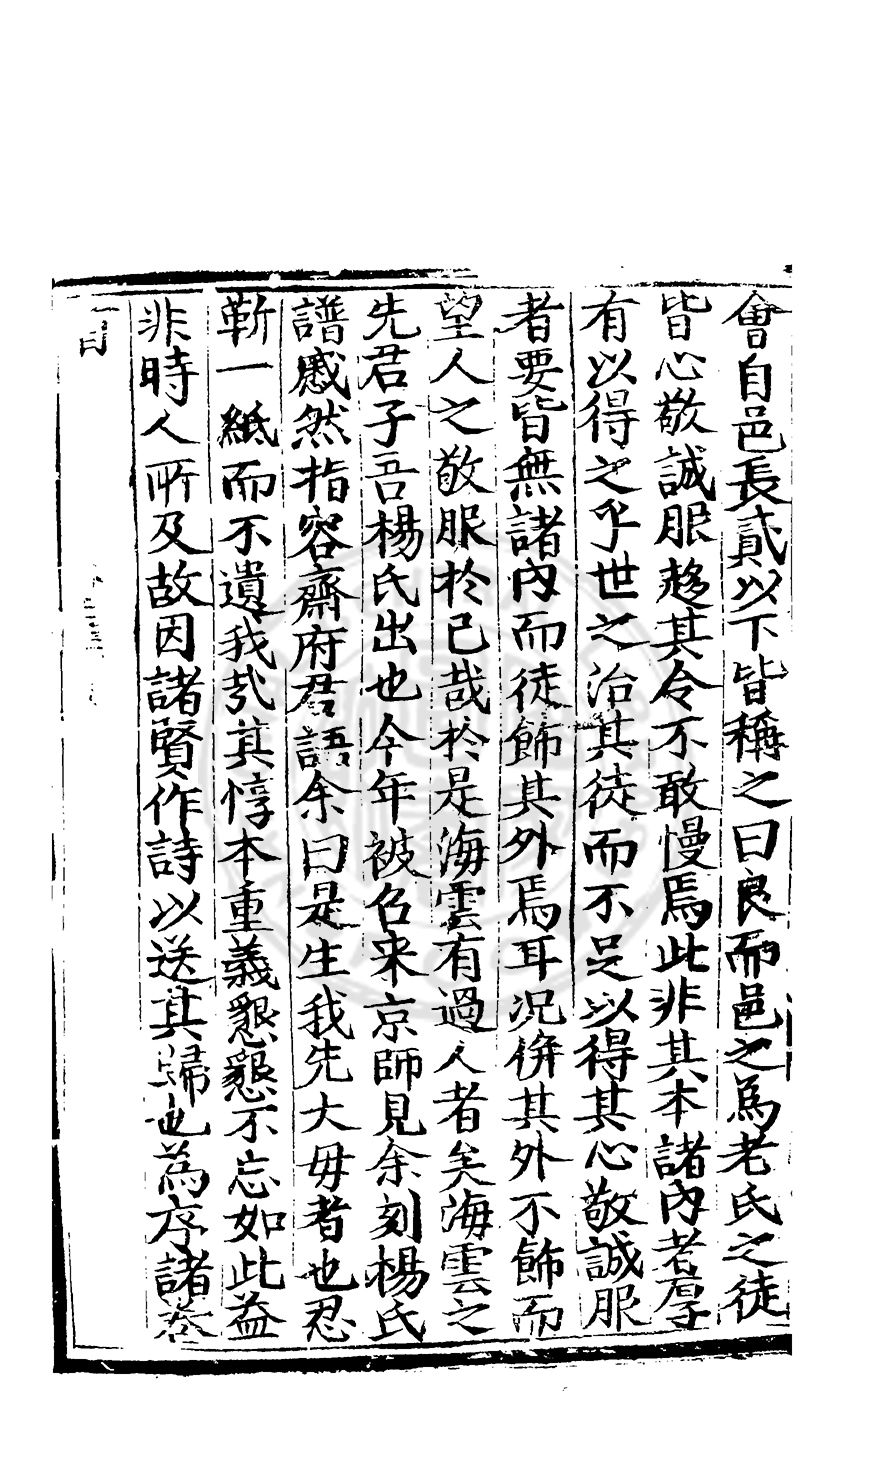 會自邑長貳以下皆稱之曰良而邑之為老氏之徒
皆心敬誠服趍其令不敢慢焉此非其本諸内者厚
有以得之乎世之治其徒而不足以得其心敬誠服
者要皆無諸内而徒飾其外焉耳况併其外不飾而
望人之敬服於已哉於是海雲有過人者矣海雲之
先君子吾楊氏出也今年被召来京師見余刻楊氏
譜慼然指容齋府君語余曰是生我先大毋者也忍
靳一紙而不遺我㢤其惇本重義懇懇不忘如此益
非時人所及故因諸賢作詩以送其歸也為序諸卷
首